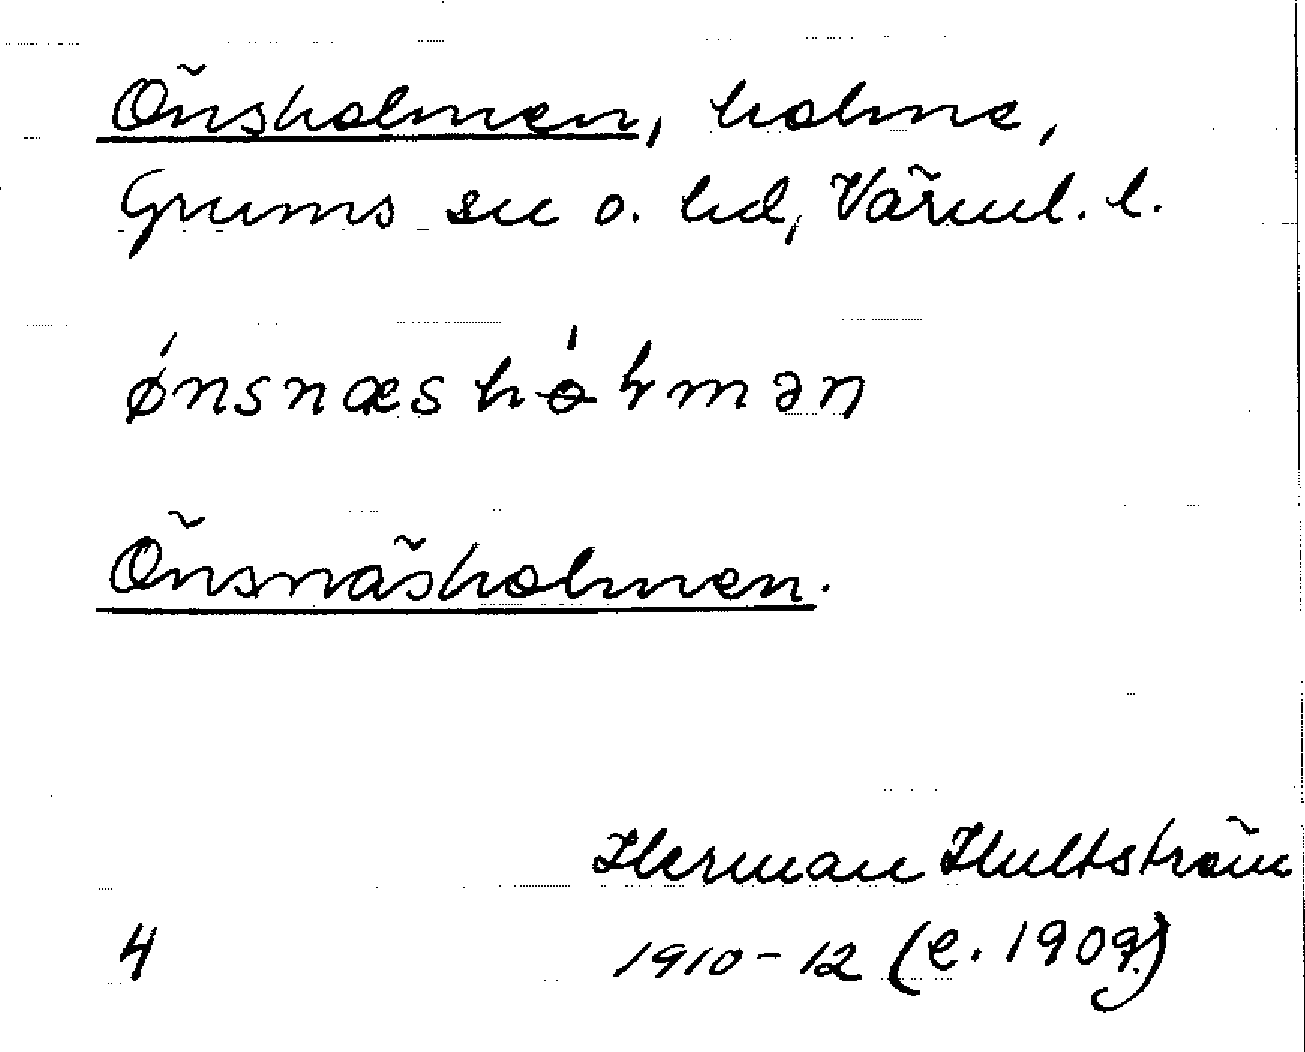 Önsholmen, holme,
Grums sn o. hd, Värml. l.
ǿnsnæshó̵ɫmən
Önsnäsholmen.
Herman Hultström
4 1910-12 (e. 1909)